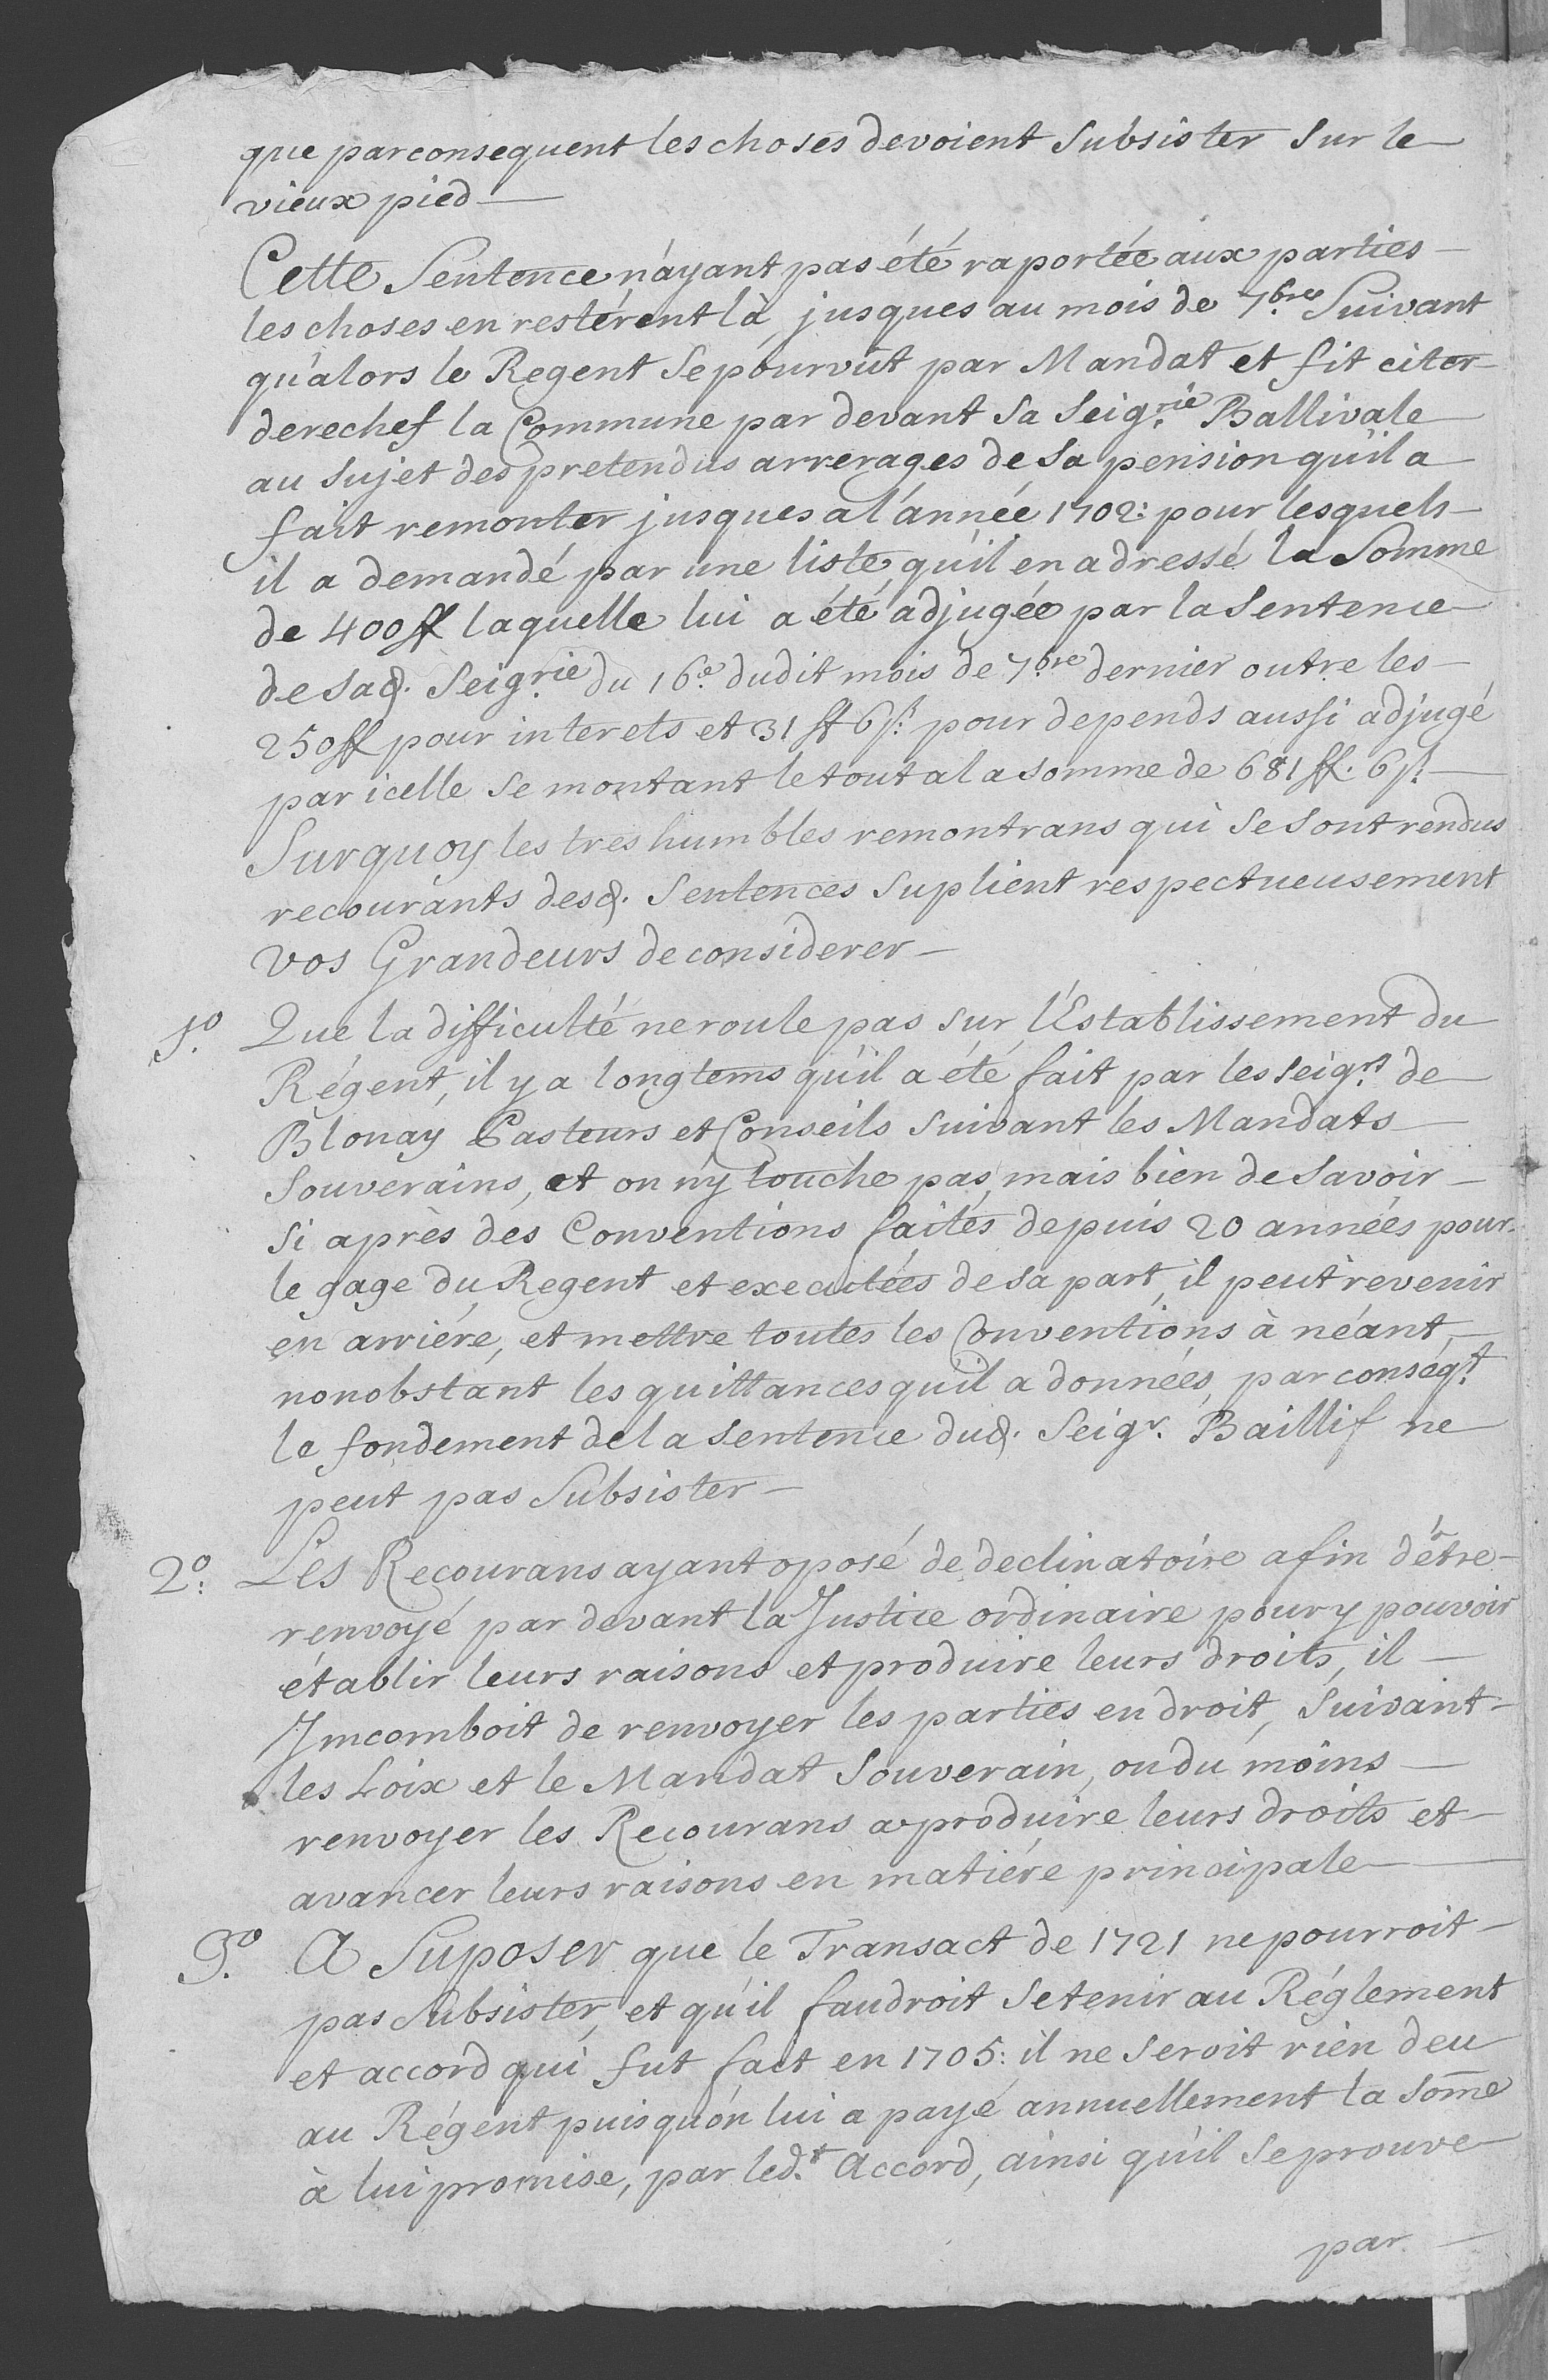 que parconsequent les choses devoient Subsister Sur le
vieux pied
Cette Sentence n'ayant pas été raportée aux parties
les choses en restérent là jusques au mois de 7.bre Suivant
qu'alors le Regent Se pourvût par Mandat et fit citer
derechef la Commune par devant Sa Seig.rie Ballivale
au Sujet des pretendus arrerages de Sa pension qu'il a
fait remonter jusques a l'année 1702: pour lesquels
il a demandé par une liste qu'il en a dressé la Somme
de 400 ff laquelle lui a été adjugée par la Sentence
de Sad. Seig.rie du 16.e dudit mois de 7.bre dernier outre les
250 ff pour interets et 31 ff 6 s: pour depends aussi adjugé
par icelle Se montant le tout a la somme de 681 ff. 6 s:
Surquoy les tres humbles remontrans qui Se Sont rendus
recourants desd. Sentences Suplient respectueusement
vos Grandeurs de considerer
1.o Que la difficulté ne roule pas Sur l'Establissement du
Régent, il y a longtems qu'il a été fait par les Seig.rs de
Blonay Pasteurs et Conseils Suivant les Mandats
Souverains, et on n'y touche pas, mais bien de Savoir
Si après des Conventions faites depuis 20 années pour
le gage du Regent et executées de Sa part, il peut revenir
en arriére, et mettre toutes les Conventions à néant,
nonobstant les quittances qu'il a données, par conséq.t
le fondement de la Sentence dud. Seig.r Baillif ne
peut pas Subsister
2.o Les Recourans ayant oposé de declinatoire afin d'être
renvoyé par devant la Justice ordinaire pour y pouvoir
établir leurs raisons et produire leurs droits, il
Imcomboit de renvoyer les parties en droit, Suivant
les Loix et le Mandat Souverain, ou du moins
renvoyer les Recourans a produire leurs droits et
avancer leurs raisons en matiére principale
3.o A Suposer que le Transact de 1721 ne pourroit
pas Subsister, et qu'il faudroit Se tenir au Réglement
et accord qui fut fait en 1705: il ne Seroit rien deu
au Régent puisqu'on lui a payé annuellement la Som̄e
à lui promise, par led.t Accord, ainsi qu'il Se prouve
par